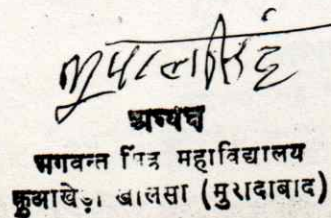 भूपाल सिंह
अध्यक्ष
भगवन्त सिंह महाविद्यालय
कुआखेड़ा खालसा (मुरादाबाद)